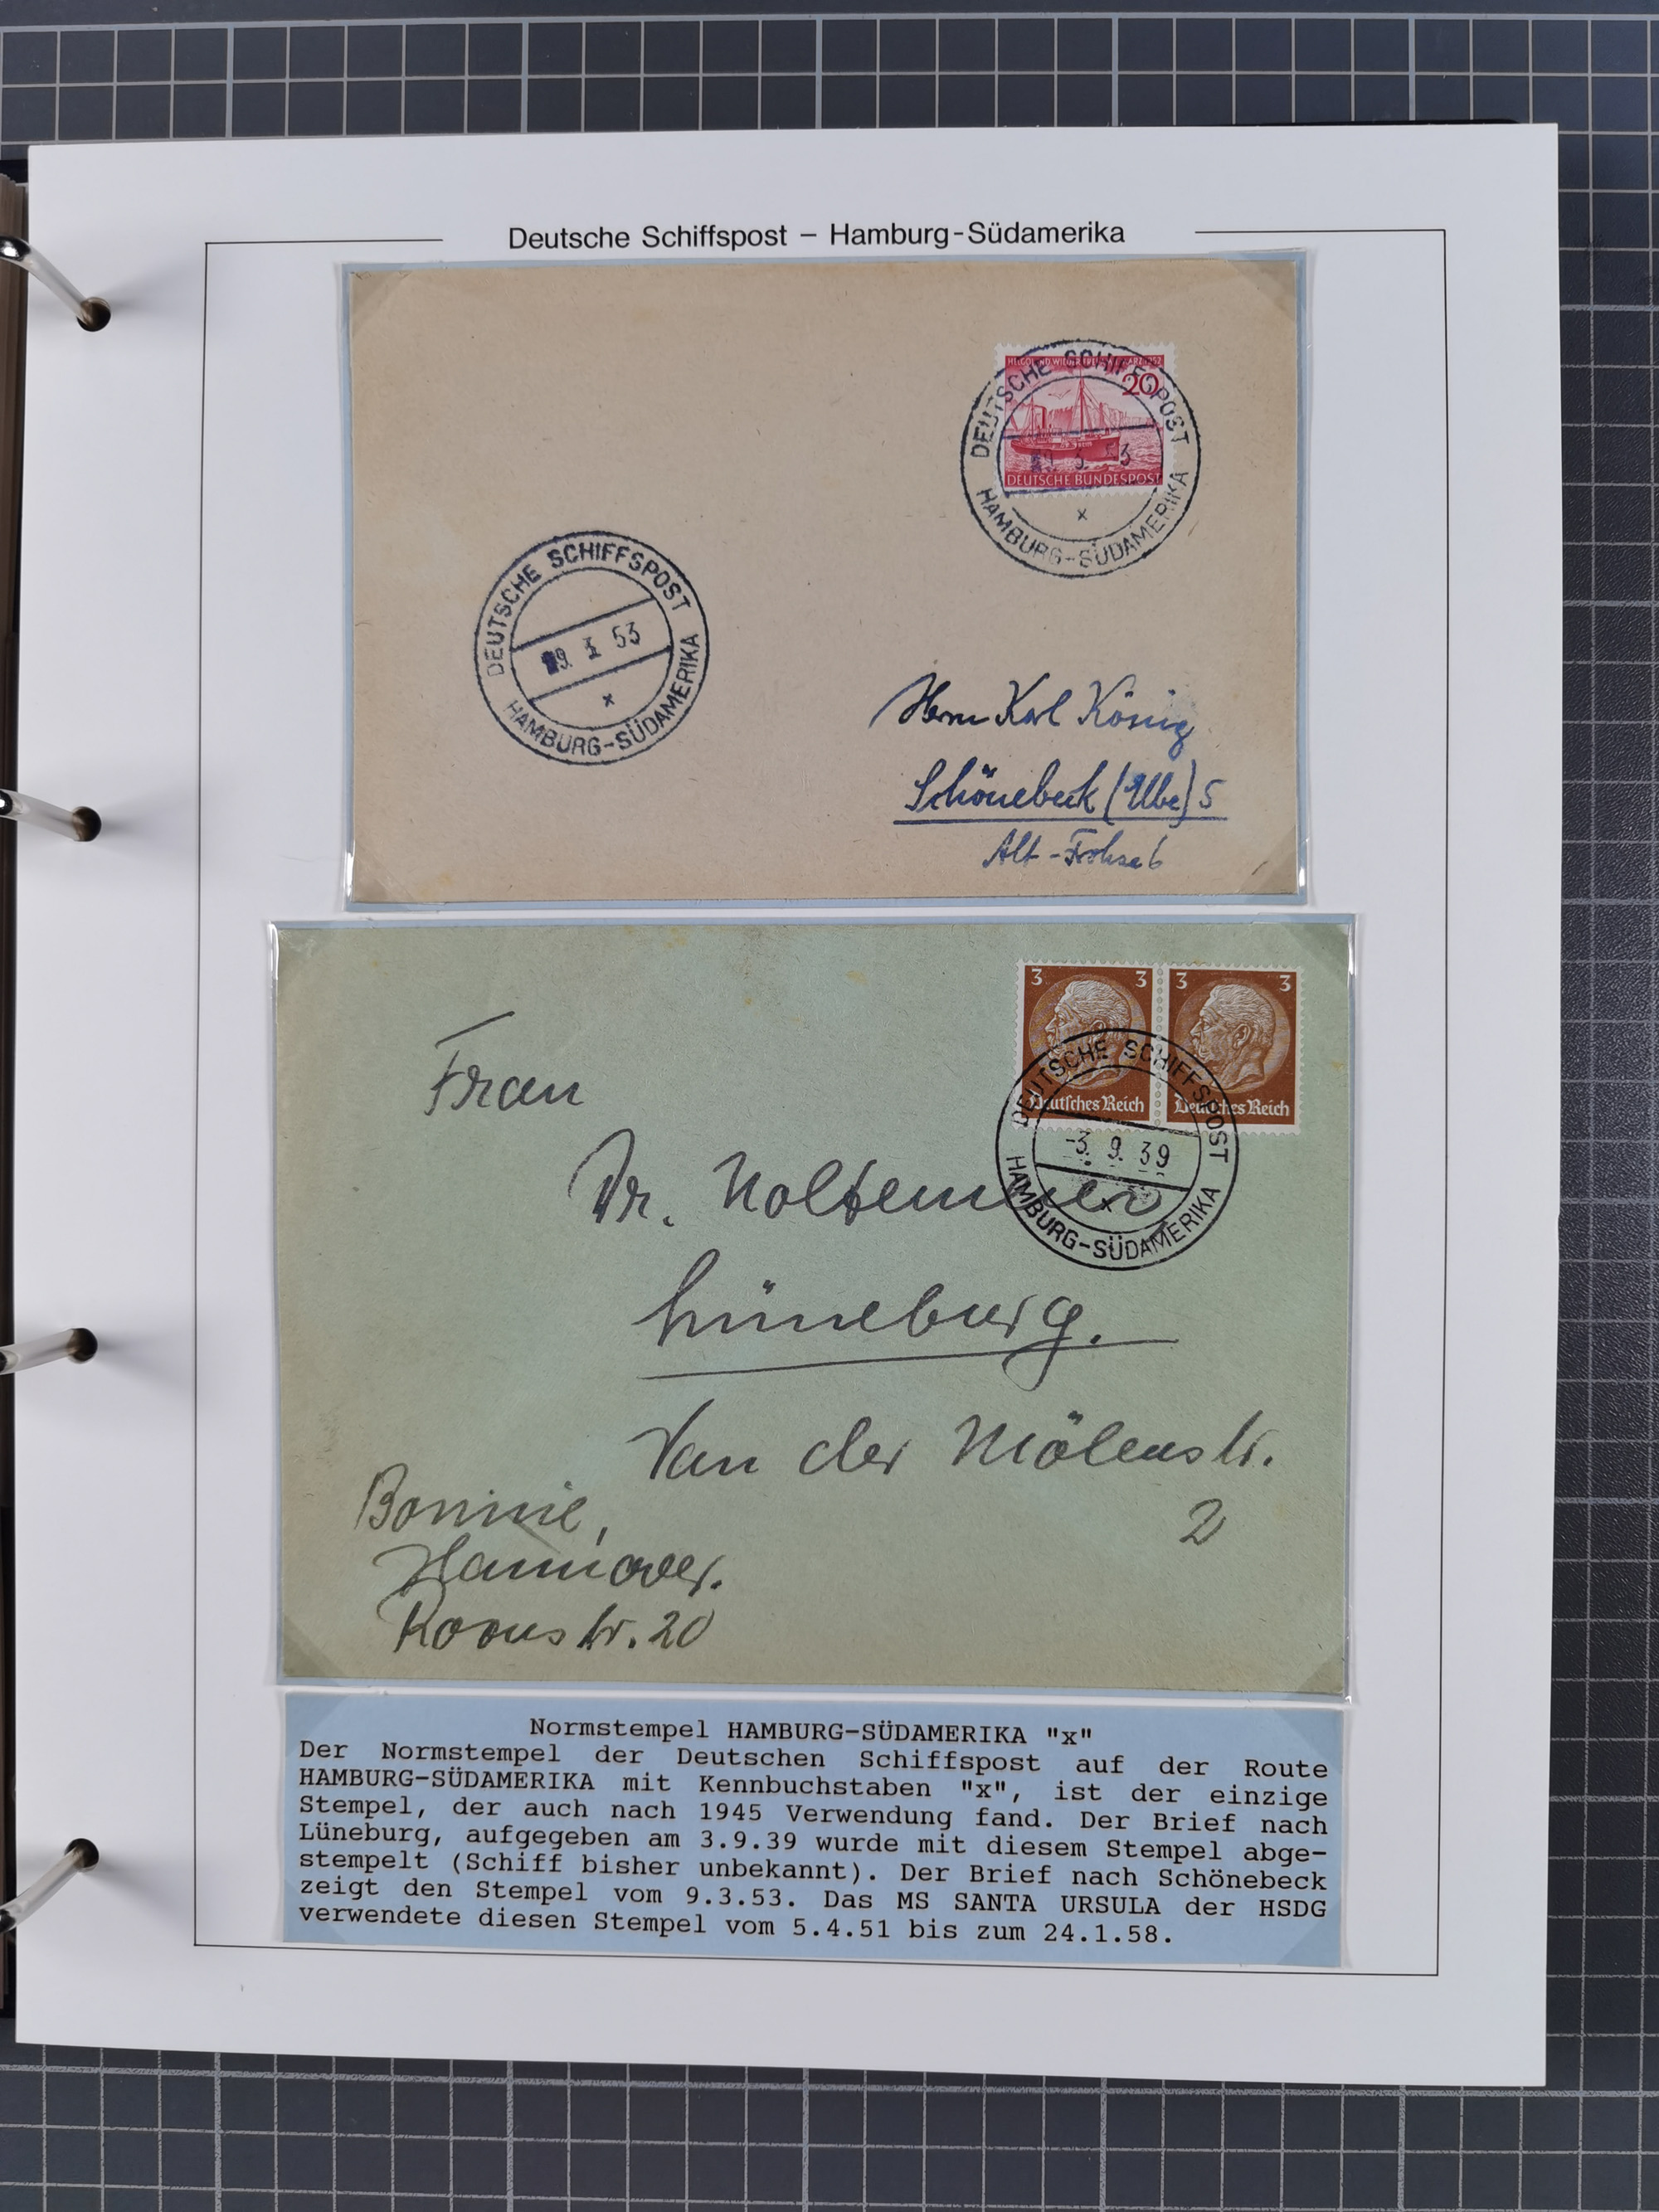 Deutsche Schiffspost – Hamburg-Südamerika
20
DEUTSCHE BUNDESPOST
DEUTSCHE SCHIFFSPOST
3. 53
x
HAMBURG-SÜDAMERIKA
DEUTSCHE SCHIFFSPOST
9. 3 53
x
HAMBURG-SÜDAMERIKA
Herrn Karl König
Schönebeck (Elbe) 5
Alt-Frohse 6
3 3 3 3
Deutsches Reich Deutsches Reich
DEUTSCHE SCHIFFSPOST
-3. 9. 39
x
HAMBURG-SÜDAMERIKA
Frau
Dr. Noltemeier
Lüneburg.
Van der Mölenstr.
2
Hannover.
Roonstr. 20
Normstempel HAMBURG-SÜDAMERIKA "x"
Der Normstempel der Deutschen Schiffspost auf der Route
HAMBURG-SÜDAMERIKA mit Kennbuchstaben "x", ist der einzige
Stempel, der auch nach 1945 Verwendung fand. Der Brief nach
Lüneburg, aufgegeben am 3.9.39 wurde mit diesem Stempel abge-
stempelt (Schiff bisher unbekannt). Der Brief nach Schönebeck
zeigt den Stempel vom 9.3.53. Das MS SANTA URSULA der HSDG
verwendete diesen Stempel vom 5.4.51 bis zum 24.1.58.